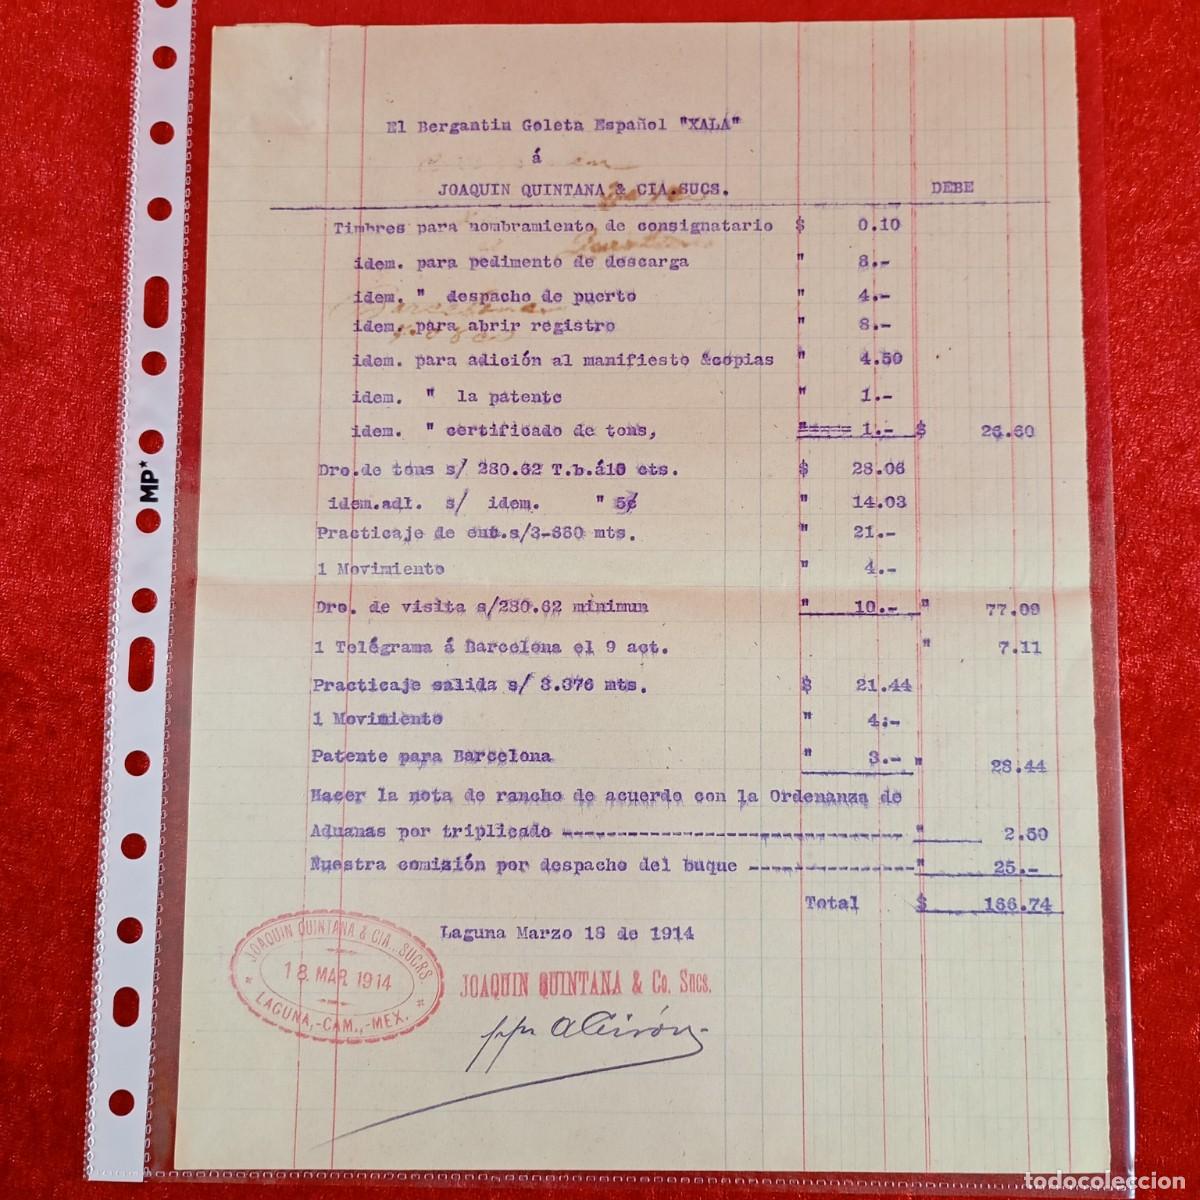 El Bergantin Goleta Español "XALA"
á
JOAQUIN QUINTANA & CIA.SUCS. DEBE
Timbres para nombramiento de consignatario $ 0.10
idem. para pedimento de descarga " 8.-
idem. " despacho de puerto " 4.-
idem. para abrir registro " 8.-
idem. para adición al manifiesto &copias " 4.50
idem. " la patente " 1.-
idem. " certificado de tons, " 1.- $ 26.60
Dro.de tons s/ 280.62 T.b.á10 cts. $ 28.06
idem.adl. s/ idem. " 5¢ " 14.03
Practicaje de ent.s/3-660 mts. " 21.-
1 Movimiento " 4.-
Dro. de visita s/280.62 minimun " 10.- " 77.09
1 Telégrama á Barcelona el 9 act. " 7.11
Practicaje salida s/ 3.376 mts. $ 21.44
1 Movimiento " 4.-
Patente para Barcelona " 3.- " 28.44
Hacer la nota de rancho de acuerdo con la Ordenanza de
Aduanas por triplicado ------------------------------ " 2.50
Nuestra comizión por despacho del buque -------------- " 25.-
Total $ 166.74
Laguna Marzo 18 de 1914
JOAQUIN QUINTANA & CIA., SUCRS.
18. MAR. 1914
LAGUNA,-CAM.,-MEX.
JOAQUIN QUINTANA & Co. Sucs.
MP*
todocoleccion